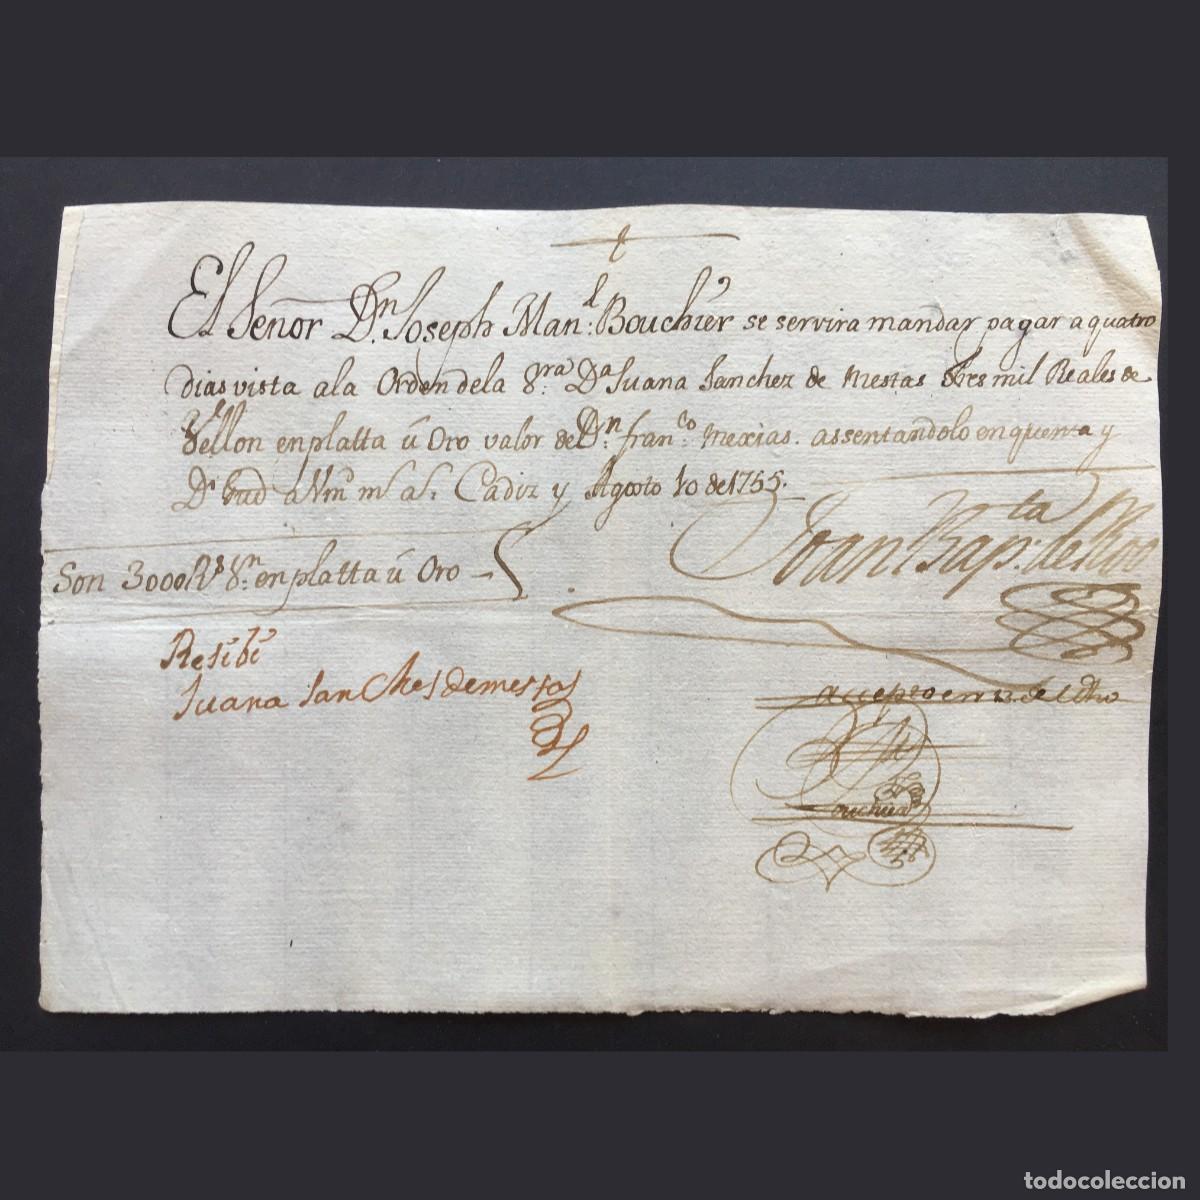 El Señor Dn. Joseph Manl. Bouchier se servira mandar pagar a quatro
dias vista a la Orden de la Sra. Da Juana Sanchez de Mestas tres mil Reales de
Vellon en platta ú Oro valor de Dn. franco. Mexias. assentandolo en quenta y
Ds. Gud a Vm. ms. as. Cadiz y Agosto 10 de 1755.
Juan Bapta. de
Son 3000 Rs. Vn. en platta ú Oro
Resivi
Juana Sanches de mestas
Accepto en 12. de dho
Bouchier
todocoleccion